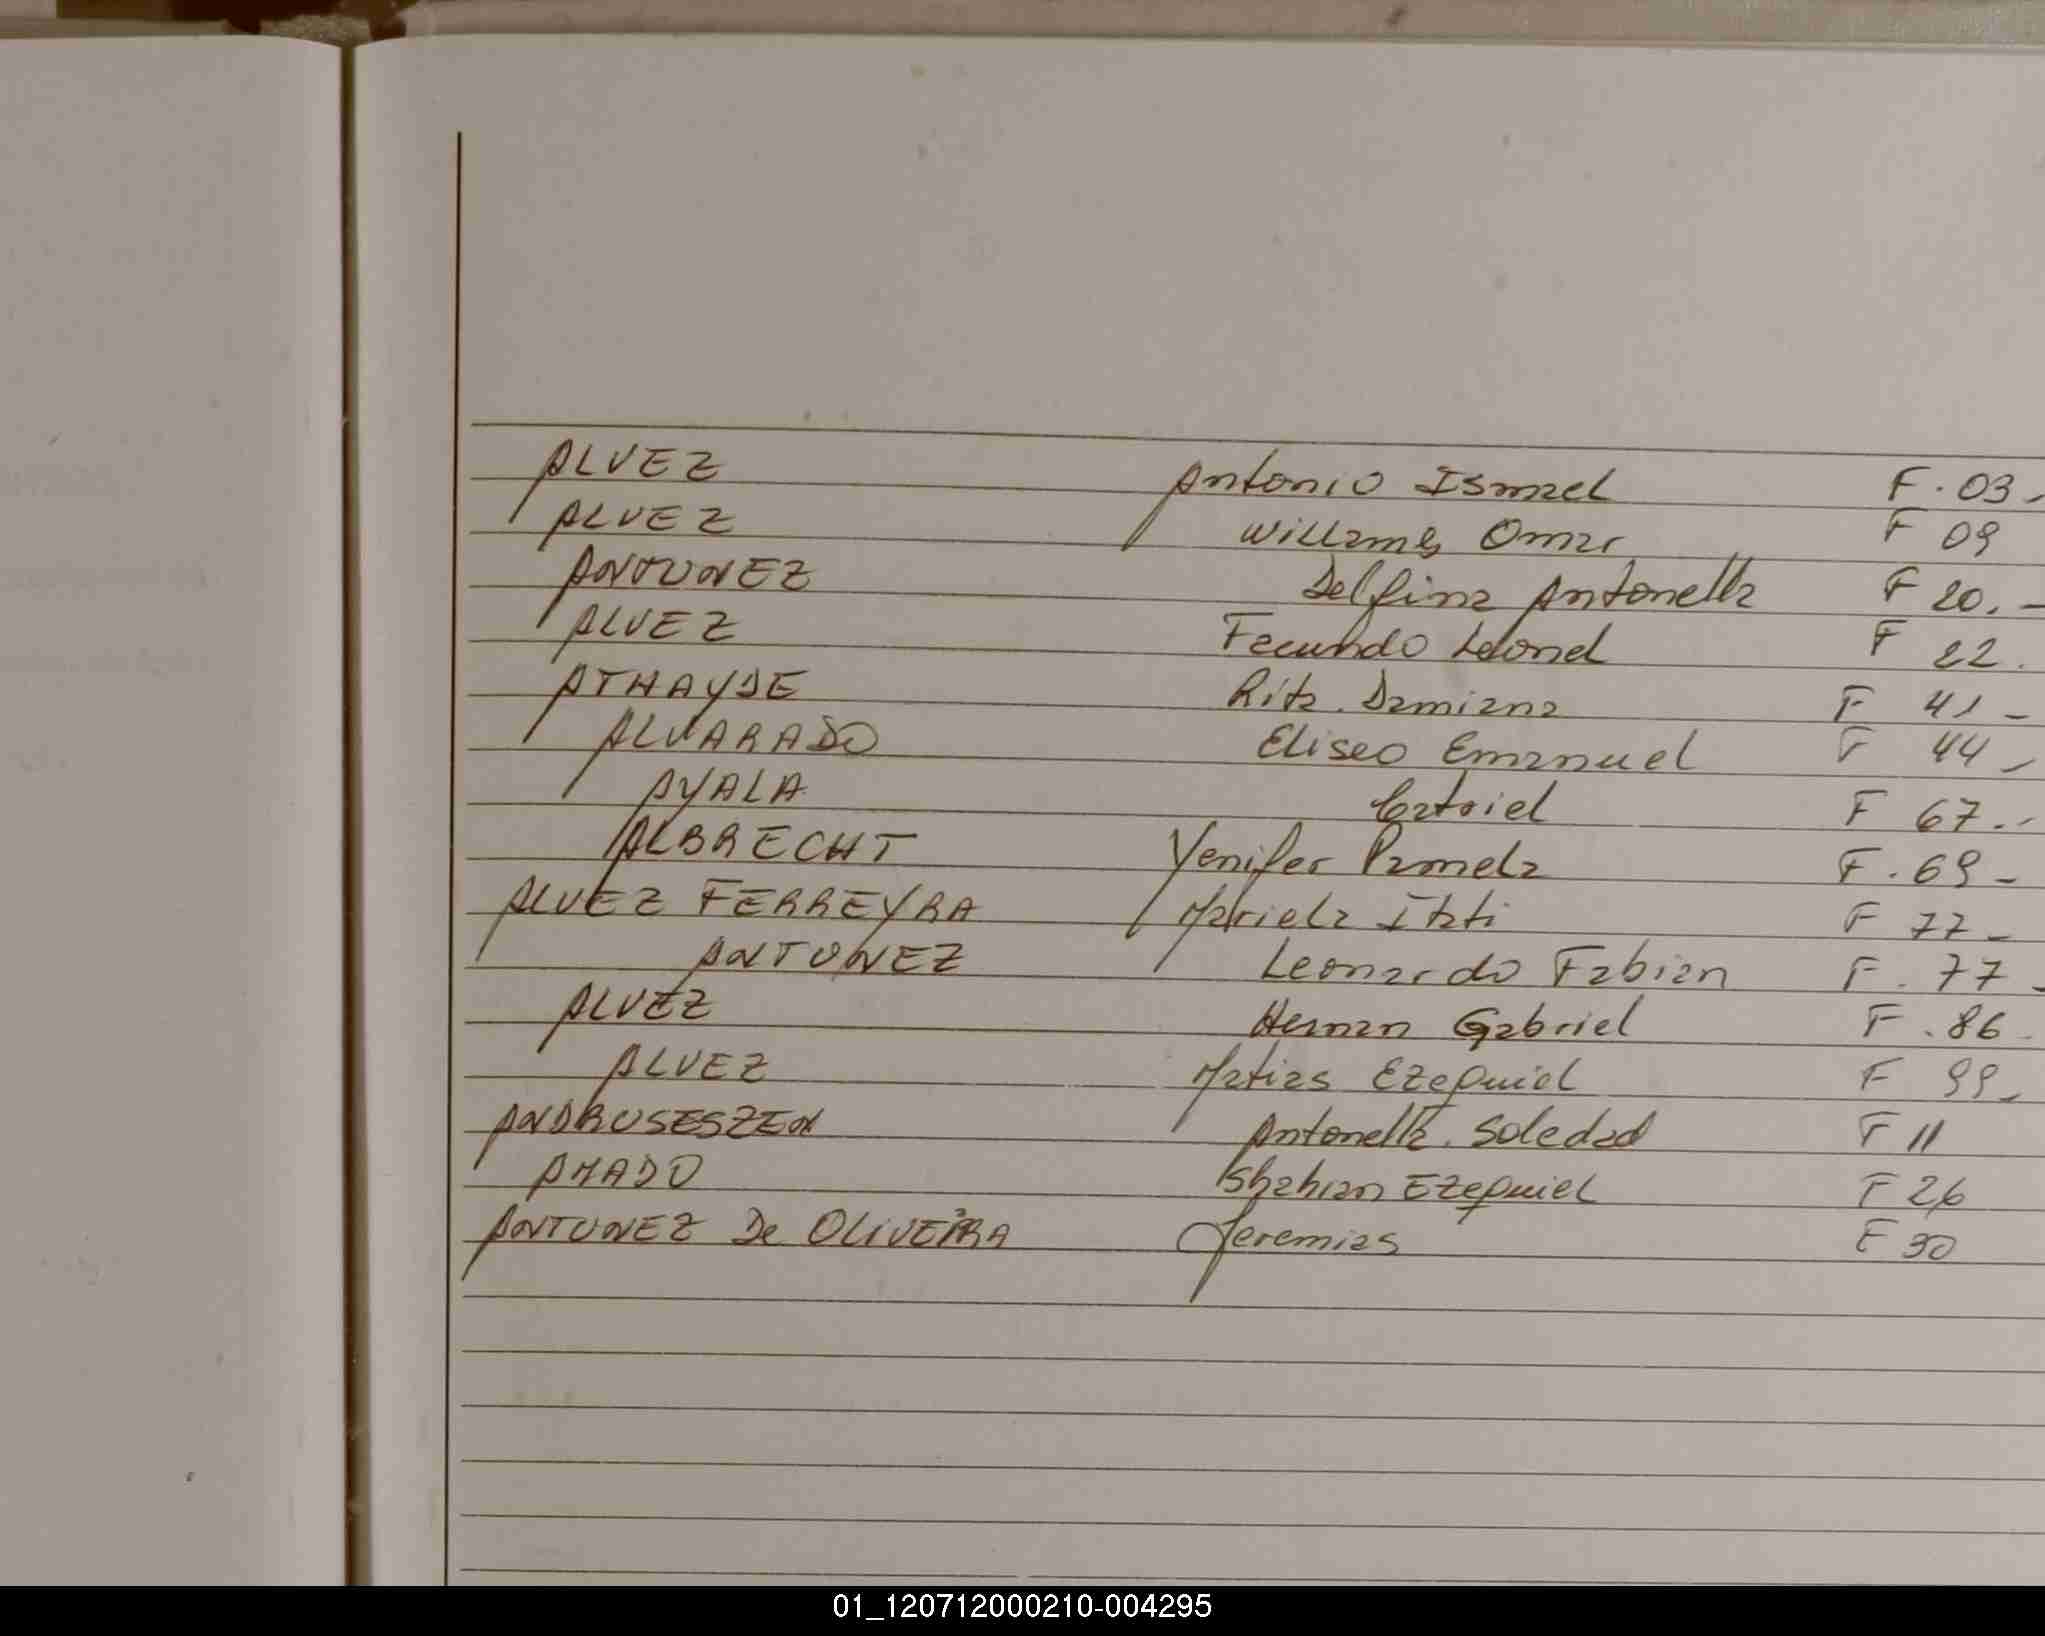 ALVEZ Antonio Ismael F. 03-
ALVEZ Willams Omar F 09
ANTUNEZ Delfina Antonella F 20.-
ALVEZ Facundo Leonel F 22.
ATHAYDE Rita Damiana F 41-
ALVARADO Eliseo Emanuel F 44-
AYALA F 67.-
ALBRECHT Yenifer Pamela F. 69-
ALVEZ FERREYRA Mariela Itati F 77-
ANTUNEZ Leonardo Fabian F. 77-
ALVEZ Hernan Gabriel F. 86.
ALVEZ Matias Ezequiel F 99-
Antonella Soledad F 11
AMADO Ezequiel F 26
ANTUNEZ De OLIVEIRA Jeremias F 30
01_120712000210-004295